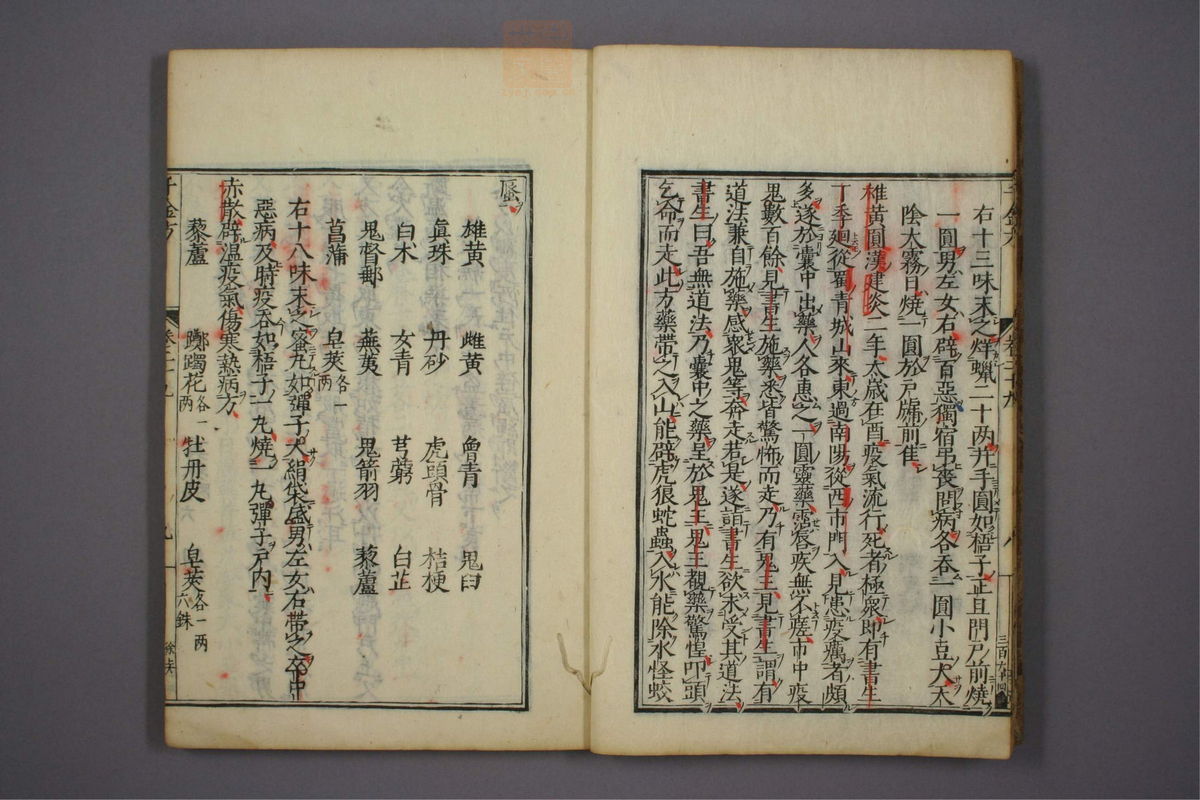 右十三味末之烊蝋二十两并手圓如梧子正旦門戸前燒
一圓男左女右辟百惡獨宿弔喪問病各吞一圓小豆大天
陰大霧日燒一圓於戸牖前佳
雄黄圓漢建炎二年太歲在酉疫氣流行死者極衆即有書生
丁季廻從蜀青城山來東過南陽從西市門入見患疫癘者頗
多遂於囊中出藥人各惠之一圓靈藥霑唇疾無不瘥市中疫
鬼數百餘見書生施藥悉皆驚怖而走乃有鬼王見書生謂有
道法兼自施藥感衆鬼等奔走若是遂詣書生欲求受其道法
書生曰吾無道法乃囊中之藥呈於鬼王鬼王覩藥驚惶叩頭
乞命而走此方藥帶之入山能辟虎狼蛇蟲入水能除水怪蛟
蜃
雄黄 雌黄 曾青 鬼臼
眞珠 丹砂 虎頭骨 桔梗
白术 女青 芎藭 白芷
鬼督郵 蕪荑 鬼箭羽 藜蘆
菖蒲 皁莢各一两
右十八味末之蜜丸如彈子大絹袋盛男左女右帶之卒中
惡病及時疫吞如梧子一丸燒一丸彈子戸内
赤散辟温疫氣傷寒熱病方
藜蘆 躑躅花各一两 牡丹皮 皁莢各一两六銖
千金方 卷二十九 九